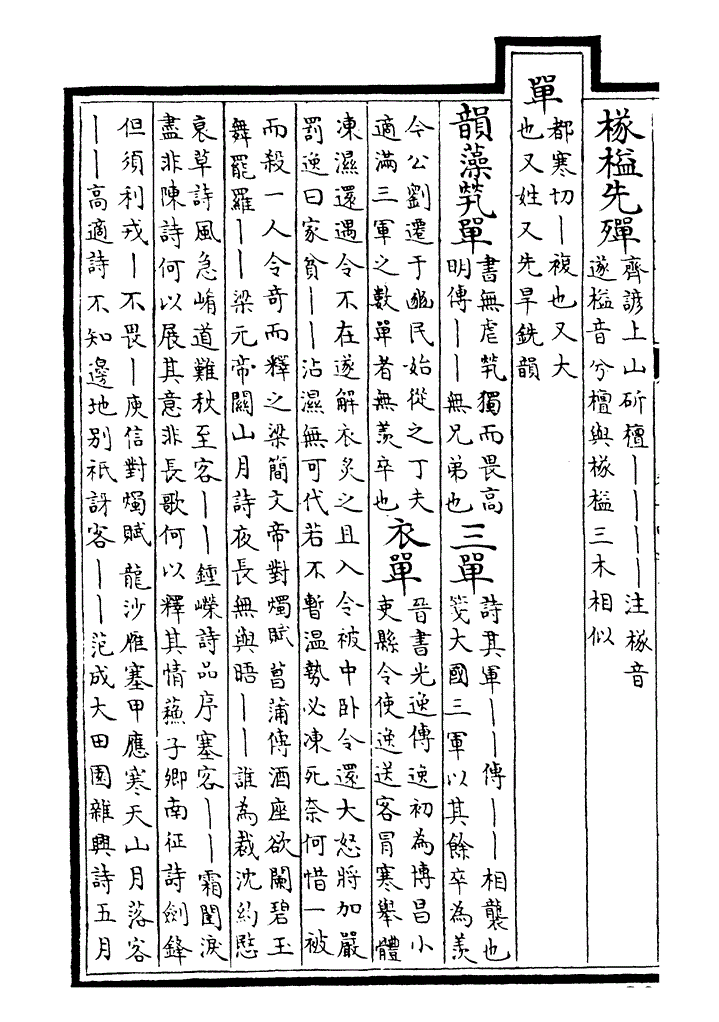 椽榏先殫
齊諺上山斫檀丨丨丨丨注椽音
遂榏音兮檀與椽榏三木相似
單
都寒切丨複也又大
也又姓又先旱銑韻
韻藻煢單
書無虐煢獨而畏高
明傳丨丨無兄弟也
三單
詩其軍丨丨傳丨丨相襲也
箋大國三軍以其餘卒為羨
今公劉遷于豳民始從之丁夫
適滿三軍之數單者無羨卒也
衣單
晉書光逸傳逸初為博昌小
吏縣令使逸送客冒寒舉體
凍濕還遇令不在遂解衣炙之且入令被中卧令還大怒將加嚴
罰逸曰家貧丨丨沾濕無可代若不暫温勢必凍死奈何惜一被
而殺一人令奇而釋之梁簡文帝對燭賦菖蒲傳酒座欲闌碧玉
舞罷羅丨丨梁元帝關山月詩夜長無與晤丨丨誰為裁沈約愍
衰草詩風急崤道難秋至客丨丨鍾嶸詩品序塞客丨丨霜閨淚
盡非陳詩何以展其意非長歌何以釋其情蘇子卿南征詩劍鋒
但須利戎丨不畏丨庾信對燭賦龍沙雁塞甲應寒天山月落客
丨丨高適詩不知邊地别祇訝客丨丨范成大田園雜興詩五月